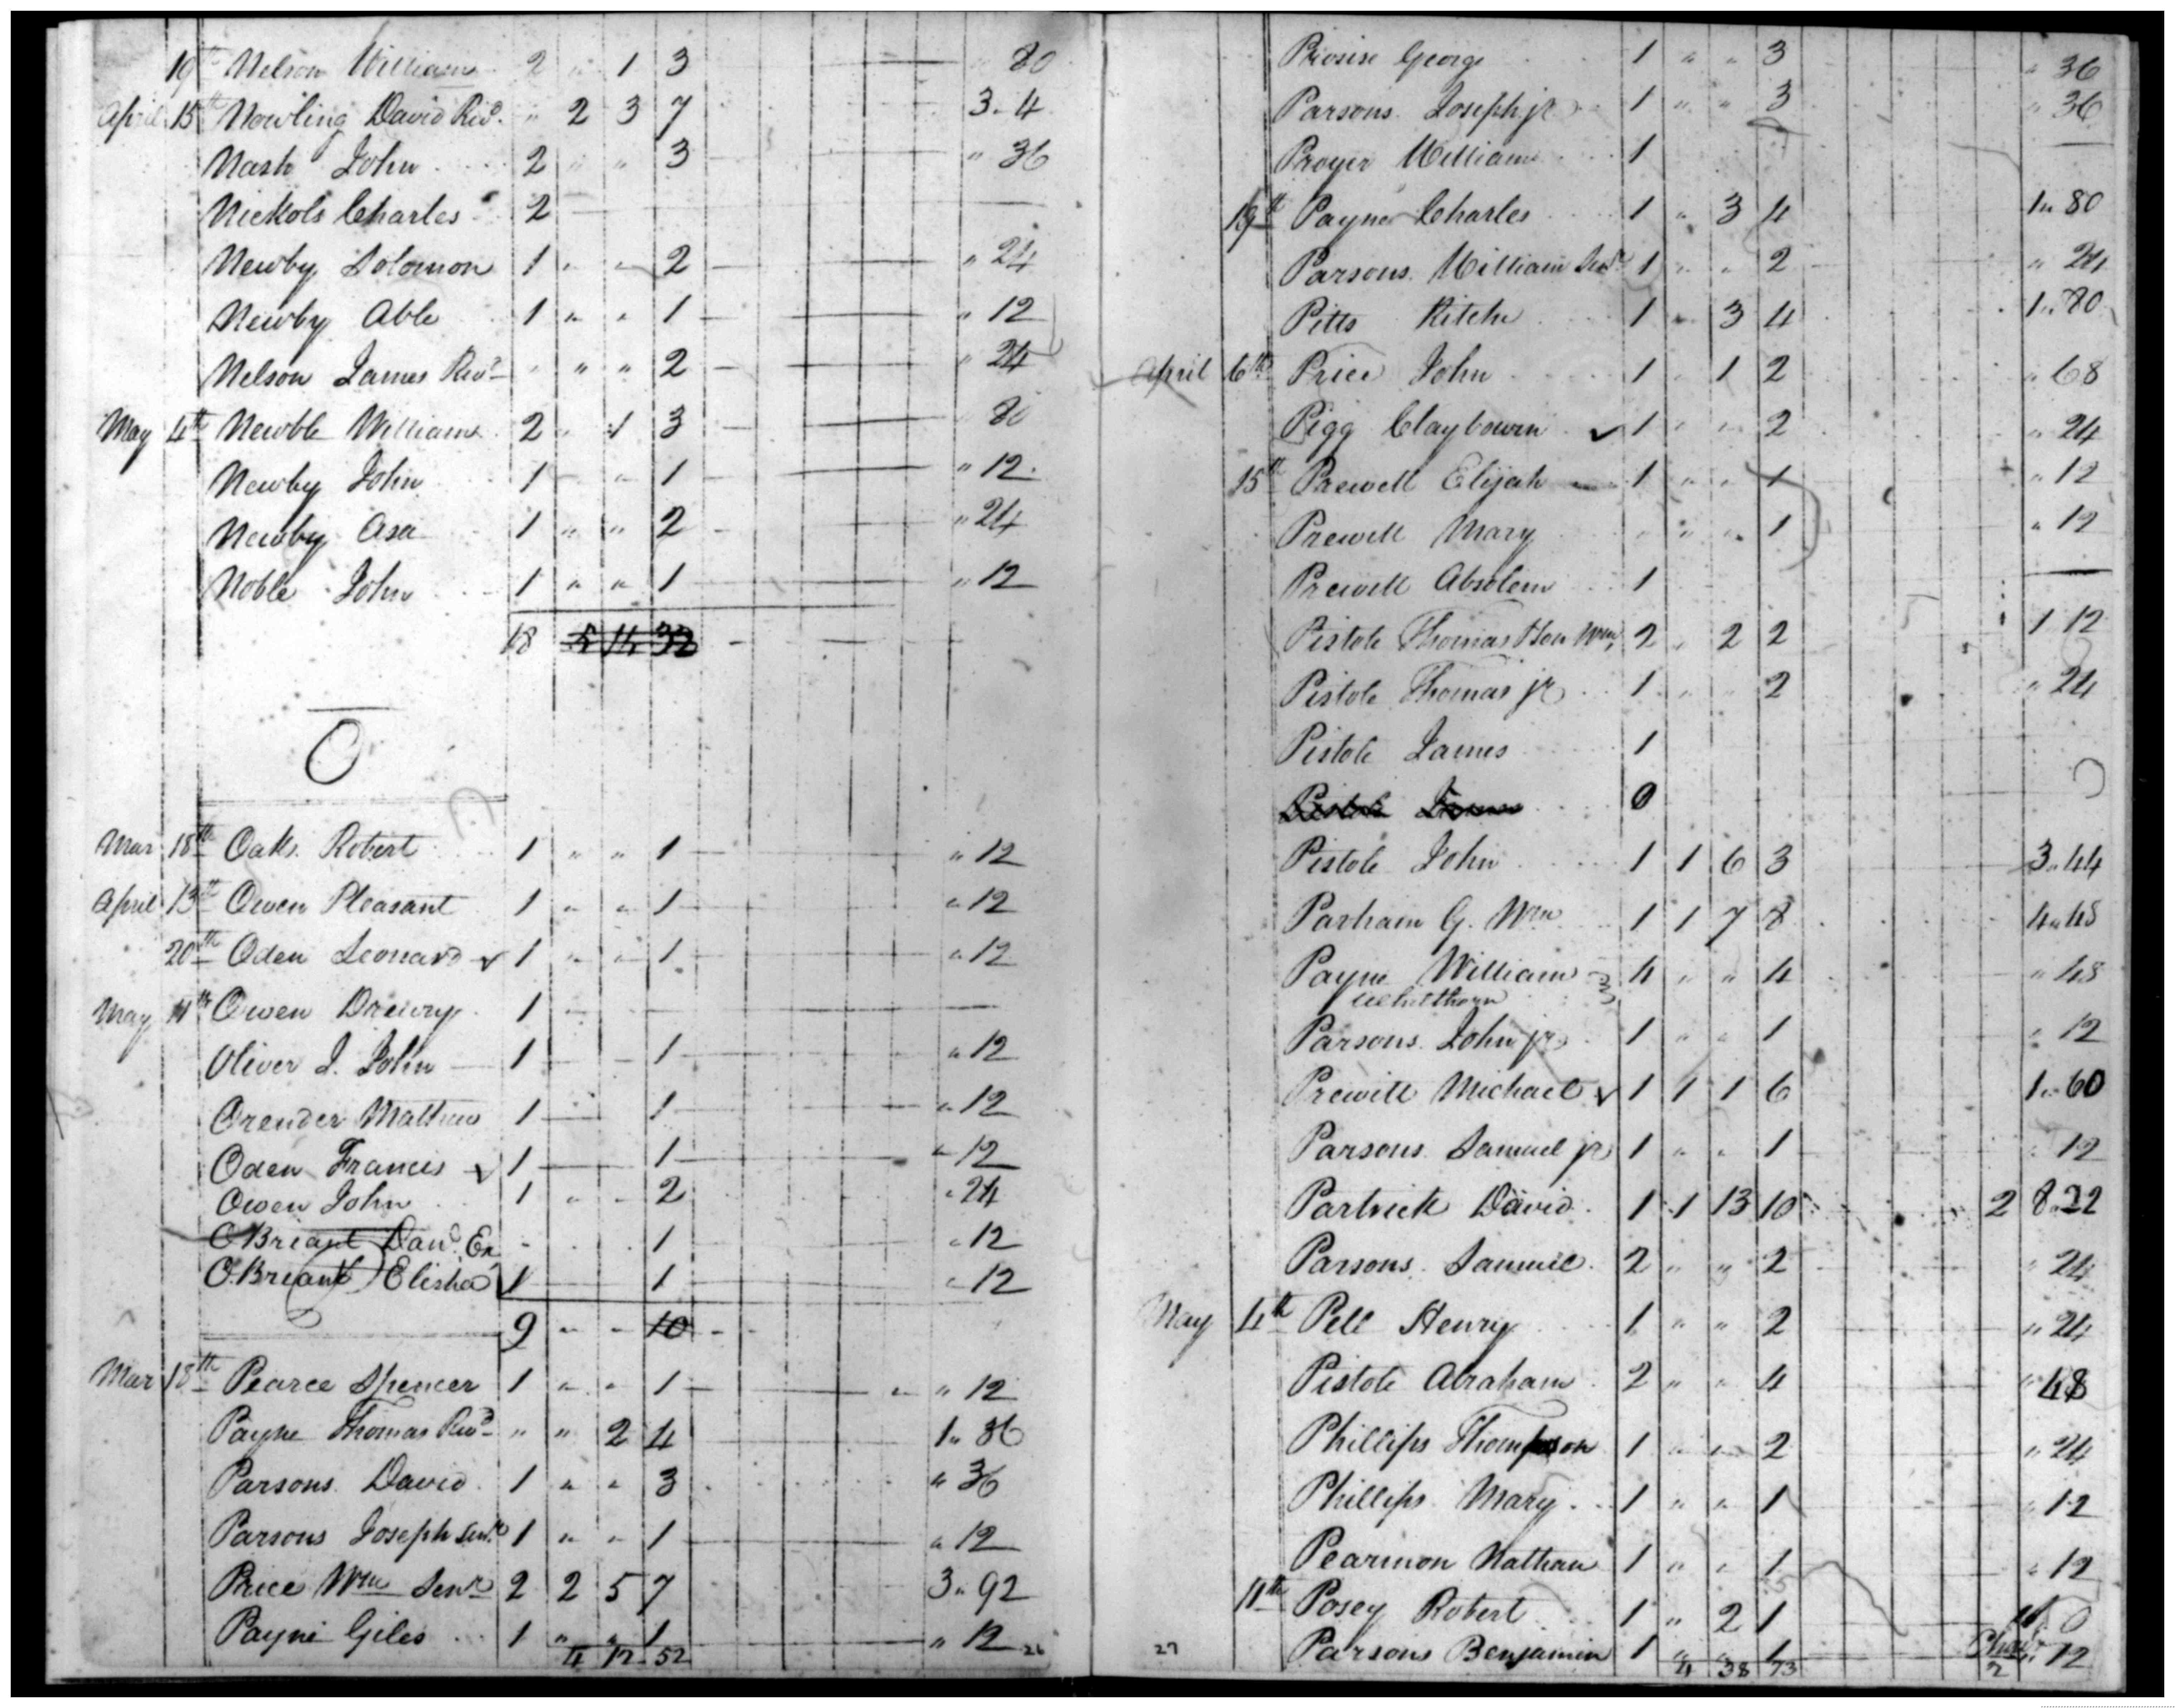 19th Nelson William 2 " 1 3 " 80
April 15th Nowling David Revd " 2 3 7 3. 4
Nash John 2 " " 3 " 36
Nickols Charles 2
Newby Solomon 1 " " 2 " 24
Newby Able 1 " " 1 " 12
Nelson James Revd " " " 2 " 24
May 4th Newble William 2 " 1 3 80
Newby John 1 " 1 " 12
Newby Asa 1 " " 2 " 24
Noble John 1 " " 1 " 12
18 5 14 32
O
Mar 18th Oaks Robert 1 " " 1 " 12
April 13th Owen Pleasant 1 " " 1 " 12
20th Oden Leonard ✓ 1 " " 1 " 12
May 4th Owen Drewry 1
Oliver J. John 1 1 " 12
Orender Mathew 1 1 " 12
Oden Francis ✓ 1 1 " 12
Owen John 1 " " 2 " 24
OBriant Dand Ex 1 " 12
O.Briant Elisha 1 1 " 12
9 " " 10
Mar 18th Pearce Spencer 1 " " 1 " 12
Payne Thomas Revd " " 2 4 1" 36
Parsons David 1 " " 3 " 36
Parsons Joseph Senr 1 " " 1 " 12
Price Wm Senr 2 2 5 7 3" 92
Payne Giles 1 " " 1 " 12
4 12 52 26
George 1 " " 3 " 36
Parsons Joseph jr 1 " " 3 " 36
Proyer William 1
19th Payne Charles 1 " 3 4 1" 80
Parsons William Senr 1 " " 2 " 24
Pitts 1 " 3 4 1" 80
April 6th Price John 1 " 1 2 " 68
Pigg Claybourn ✓ 1 " " 2 " 24
15th Prewett Elijah 1 " " 1 " 12
Prewett Mary " " " 1 " 12
Prewett Absolem 1
Pistole Thomas Son Wm 2 " 2 2 1 12
Pistole Thomas jr 1 " " 2 " 24
Pistole James 1
Pistole James 0
Pistole John 1 1 6 3 3" 44
Parham G. Wm 1 1 7 8 4" 48
Payne William 4 " " 4 " 48
Whitthorn
Parsons John jr 1 " " 1 " 12
Prewitt Michael ✓ 1 1 1 6 1" 60
Parsons Samuel jr 1 " " 1 " 12
Partrick David 1 1 13 10 2 8"32
Parsons Samuel 2 " " 2 " 24
May 4th Pell Henry 1 " " 2 " 24
Pistole Abraham 2 " " 4 " 48
Phillips Thompson 1 " " 2 " 24
Phillips Mary 1 " " 1 " 12
Pearmon Nathan 1 " " 1 " 12
11th Posey Robert 1 " 2 1 0
Parsons Benjamin 1 " " 1 " 12
27 4 38 73 2